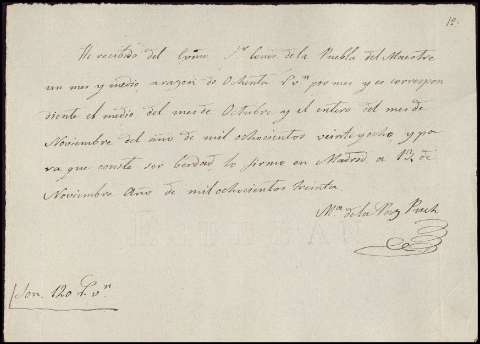 12.
He recibido del Exmo. Sr. Conde de la Puebla del Maestre
un mes y medio arazon de Ochenta r.s vn por mes y es correspon
diente el medio del mes de Octubre y el entero del mes de
Noviembre del año de mil ochocientos veinte y ocho y pa
ra que conste ser berdad lo firmo en Madrid a 12 de
Noviembre Año de mil ochocientos treinta
Ma. de la Paz Puch
Son. 120 r.s vn.